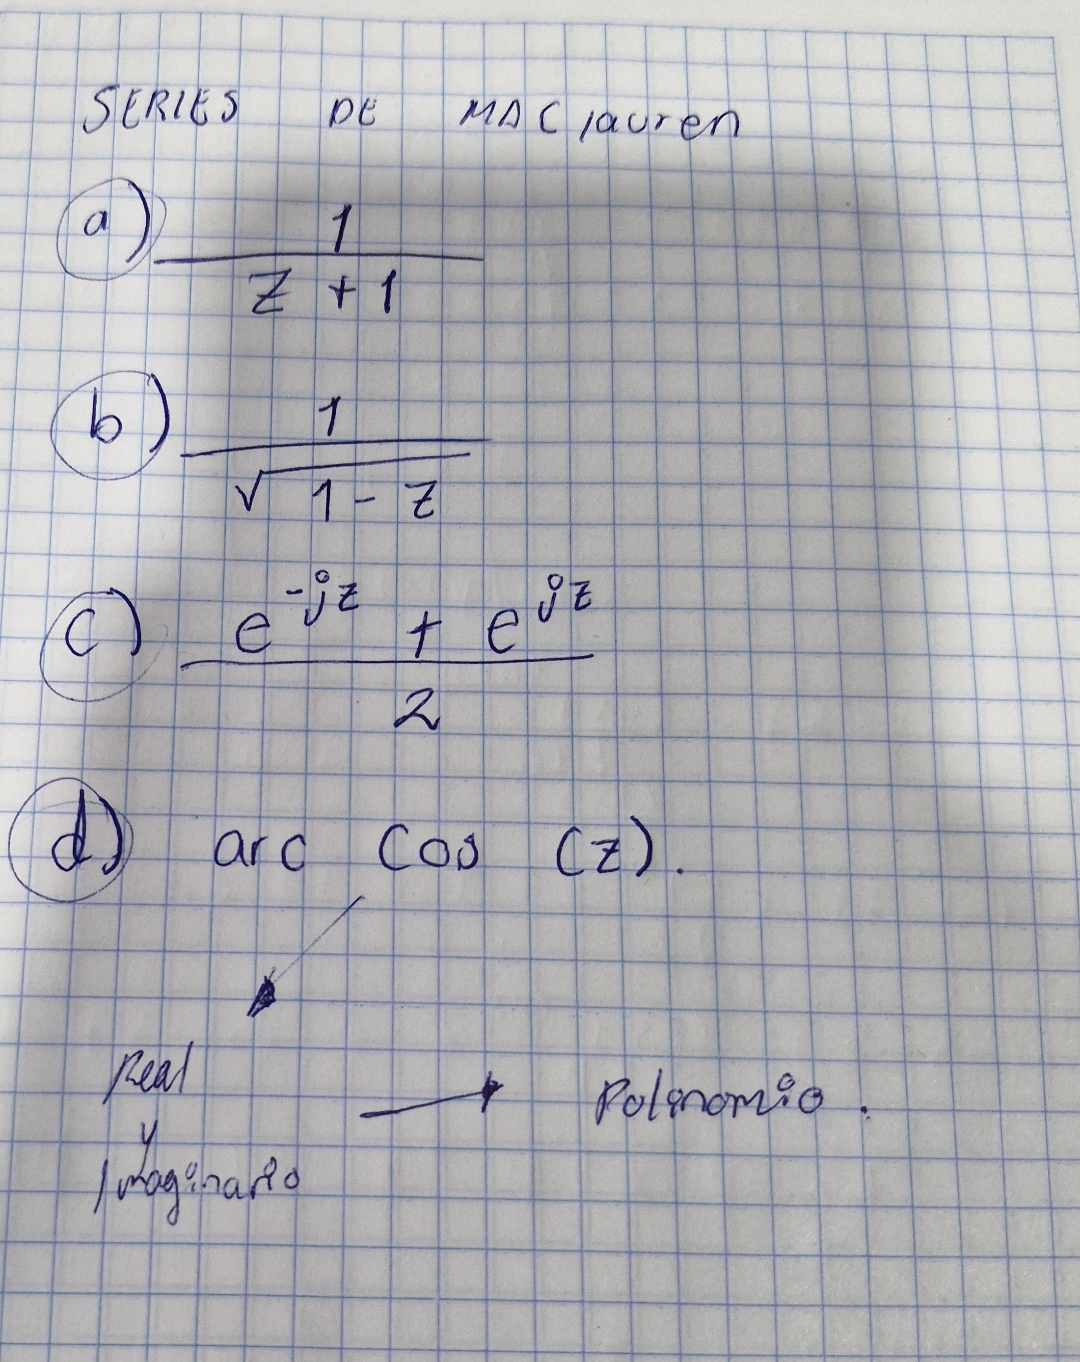 SERIES DE MAClauren
a) 1
z + 1
b) 1
√ 1 - z
c) e^-jz + e^jz
2
d) arc Cos (z).
Real
y
Imaginario
Polinomio.